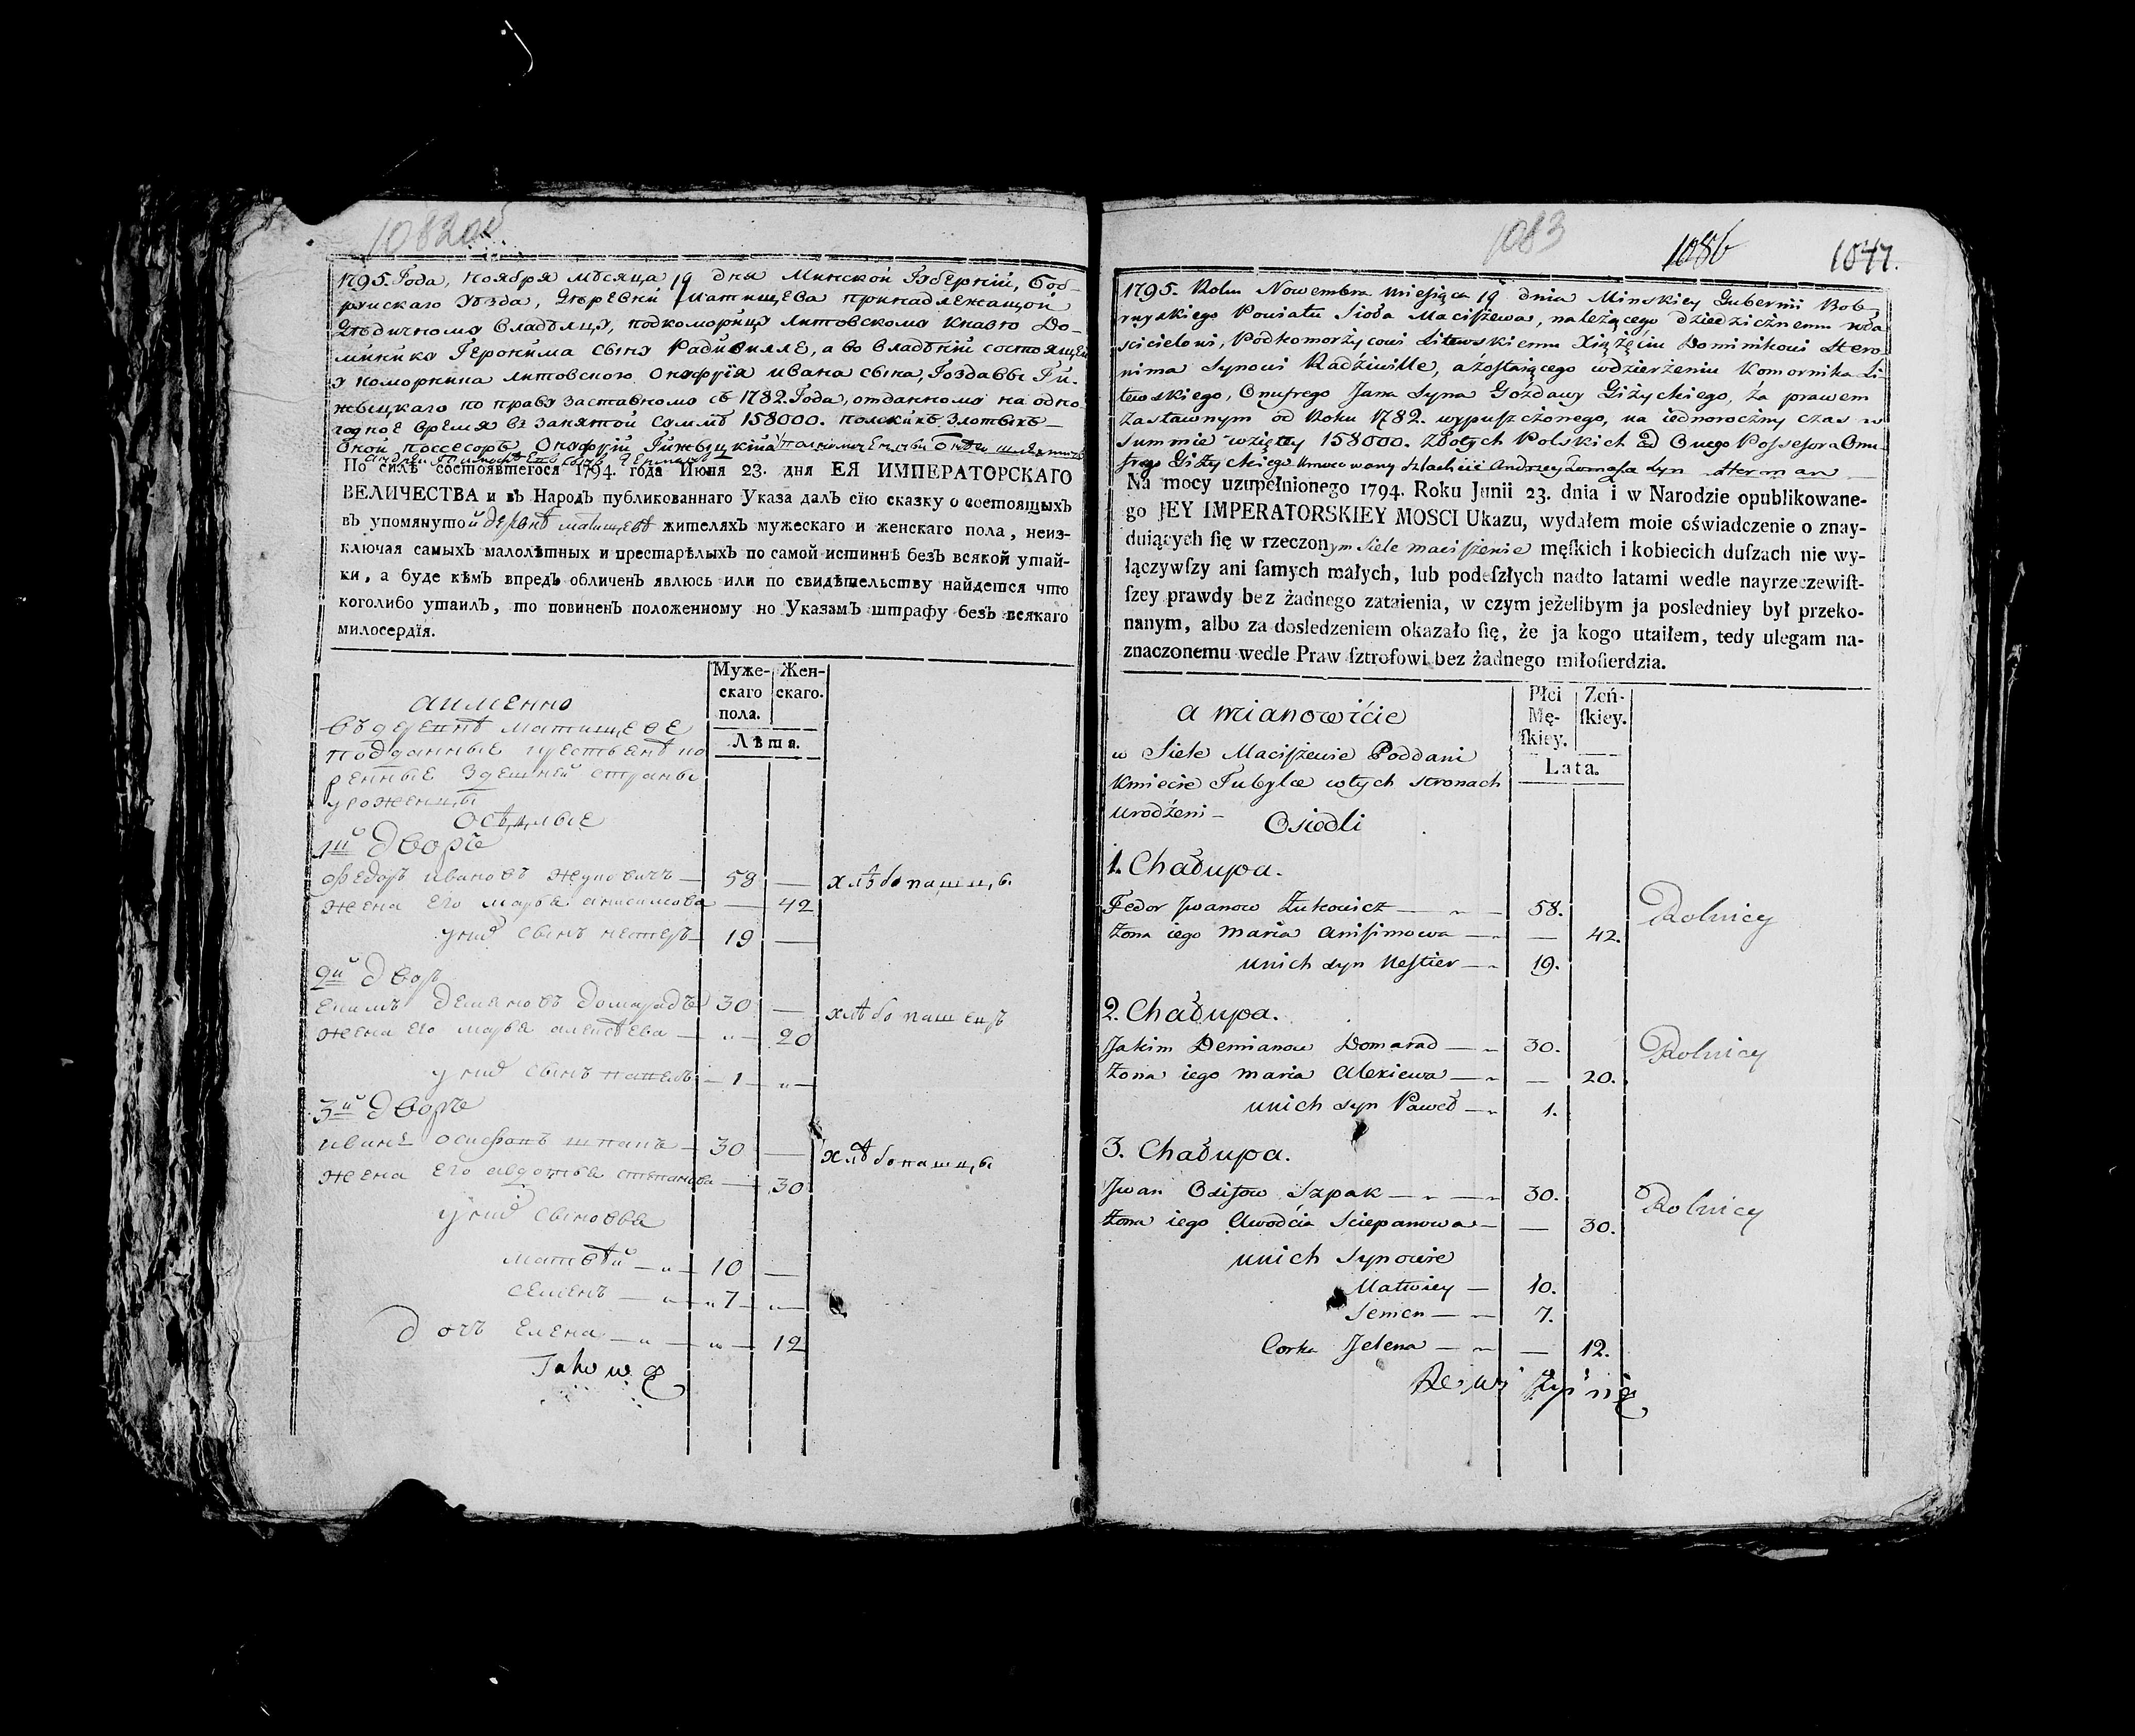 1082об
1795. Года, Ноября мѣсяца 19 дня Минской Губерніи, Боб-
руйскаго Уѣзда, Деревни Матищева принадлежащой
Дѣдичному владѣлцу, подкоморицу Литовскому Князю До-
минику Геронима сыну Радивиллѣ, а во владѣніи состоящеи
у коморника Литовского Онуфрія Ивана сына, Гоздавы Ги-
жыцкаго по праву заставному съ 1782. Года, отданному на одно
годное время въ занятой суммѣ 158000. полскихъ злотыхъ
оной поссесоръ Онуфрій Гижыцкій
По силѣ состоявшегося 1794 года Июня 23. дня ЕЯ ИМПЕРАТОРСКАГО
ВЕЛИЧЕСТВА и въ Народъ публикованнаго Указа далъ сїю сказку о состоящыхъ
въ упомянутой деревнѣ матищевѣ жителяхъ мужескаго и женскаго пола, неиз-
ключая самыхъ малолѣтныхъ и престарѣлыхъ по самой истиннѣ безъ всякой утай-
ки, а буде кѣмъ впредъ обличенъ явлюсь или по свидѣтельству найдется что
коголибо утаилъ, то повиненъ положенному но Указамъ штрафу безъ всякаго
милосердїя.
Муже-скаго пола. Жен-скаго.
Лѣта.
аименно
въ деревнѣ матищеве
подданные
здешней страны
уроженцы
оседлые
1й дворъ
Федоръ Ивановъ Жуковичъ 58 — хлѣбопашцы
жена его марья анисимова — 42
у них сынъ нестеръ 19 —
2й двор
Екимъ Демяновъ Домарадъ 30 — хлѣбопашецъ
жена его марья алексѣева — 20
у них сынъ павелъ 1 —
3й дворъ
Иванъ Осифовъ шпакъ 30 — хлѣбопашцы
жена его авдотья степанова — 30
у них сыновья
матвѣй 10 —
семенъ 7 —
дочь елена — 12
1083 1086 1047.
1795. Roku Nowembra miesiąca 19 dnia Minskiey Gubernii Bob-
ruyskiego Powiatu Sioła Maciszewa, należącego dziedzicznemu wła-
scicielowi, Podkomorzycowi Litewskiemu Xiążęciu Dominikowi Hero-
nima Synowi Radziwille, a zostaiącego w dzierżeniu Komornika Li-
tewskiego, Onufrego Jana Syna Gozdawy Giżyckiego, za prawem
Zastawnym od Roku 1782. wypuszczonego, na iednoroczny czas w
summie wziętey 158000. złotych Polskich od Onego Possesora Onu-
frego Giżyckiego Umocowany Szlachcic Andrzey Tomasza Syn Herman
Na mocy uzupełnionego 1794. Roku Junii 23. dnia i w Narodzie opublikowane-
go JEY IMPERATORSKIEY MOSCI Ukazu, wydałem moie oświadczenie o znay-
duiących ſię w rzeczonym Siele Maciszewie męſkich i kobiecich duſzach nie wy-
łączywſzy ani ſamych małych, lub podeſzłych nadto latami wedle nayrzeczewiſt-
ſzey prawdy bez żadnego zataienia, w czym jeżelibym ja posledniey był przeko-
nanym, albo za dosledzeniem okazało ſię, że ja kogo utaiłem, tedy ulegam na-
znaczonemu wedle Praw ſztrofowi bez żadnego miłoſierdzia.
Płci Mę-ſkiey. Zeń-ſkiey.
Lata.
a mianowićie
w Siele Maciszewie Poddani
Kmiecie Tubylce w tych stronach
urodzeni –
Osiedli
1. Chałupa.
Fedor Jwanow Żukowicz 58. Rolnicy
Żona iego Maria Anisimowa — 42.
u nich syn Nestier 19.
2. Chałupa.
Jakim Demianow Domarad 30. Rolnicy
Żona iego Maria Alexiewa — 20.
u nich syn Paweł 1.
3. Chałupa.
Jwan Osifow Szpak 30. Rolnicy
Żona iego Awodcia Sciepanowa — 30.
u nich Synowie
Matwiey 10.
Semen 7.
Corka Jelena — 12.